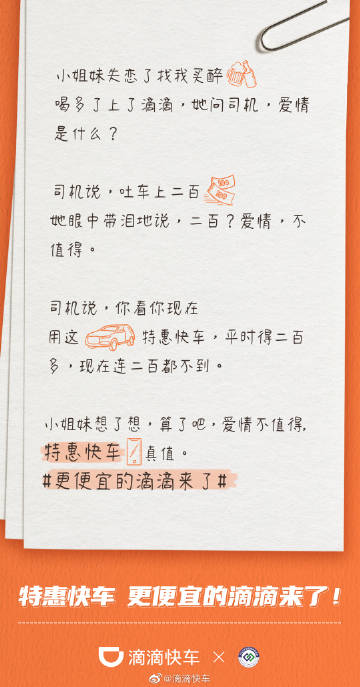 小姐妹失恋了找我买醉
喝多了上了滴滴，她问司机，爱情
是什么？
司机说，吐车上二百
她眼中带泪地说，二百？爱情，不
值得。
司机说，你看你现在
用这 特惠快车，平时得二百
多，现在连二百都不到。
小姐妹想了想，算了吧，爱情不值得，
特惠快车 真值。
#更便宜的滴滴来了#
特惠快车 更便宜的滴滴来了！
滴滴快车 ×
@滴滴快车